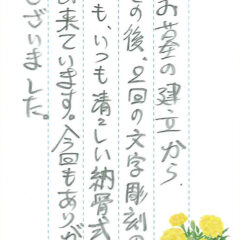 お墓の建立から、
その後、2回の文字彫刻の
も、いつも清々しい納骨式
出来ています。今回もありが
ございました。